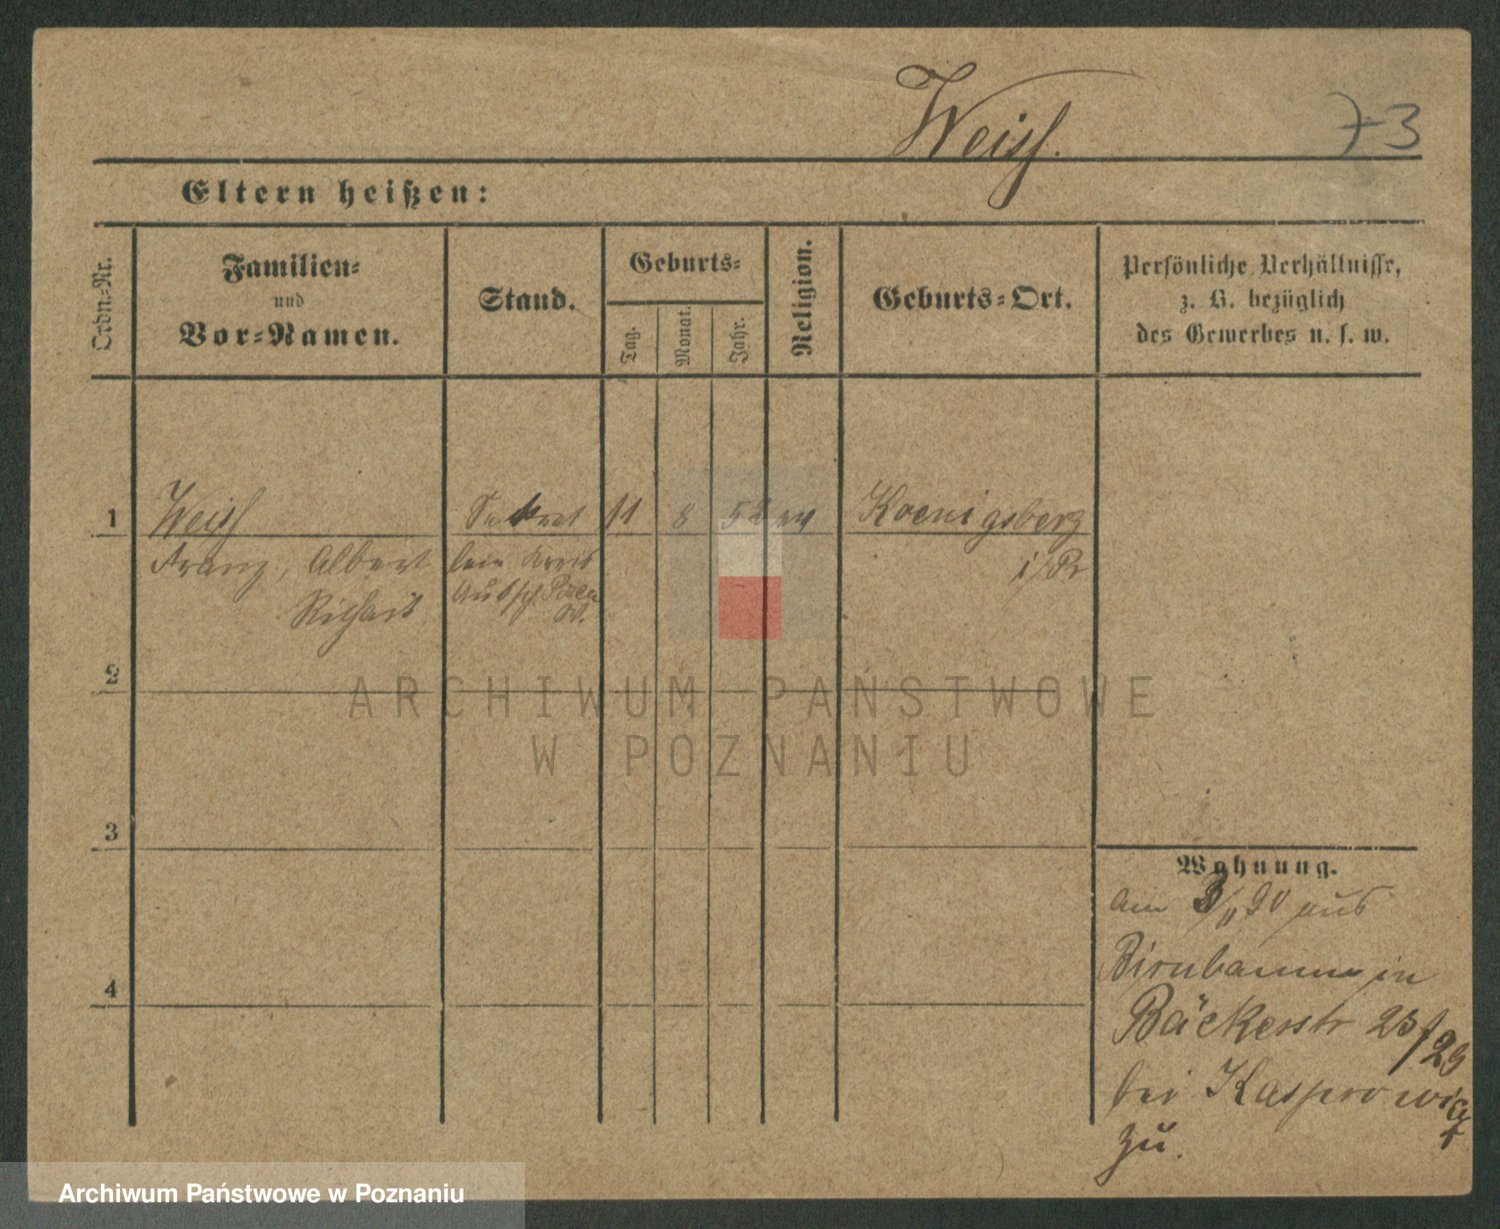 Weiss.
73
Eltern heißen:
Ordn.-Nr.
Familien-
und
Vor-Namen.
Stand.
Geburts-
Tag.
Monat.
Jahr.
Religion.
Geburts-Ort.
Persönliche Verhältnisse,
z. B. bezüglich
des Gewerbes u. s. w.
1
Weiss
Franz, Albert
Richard
Sekret
beim Kreis
11
8
52
ev
Koenigsberg
i/Pr
2
3
4
Wohnung.
am 3/11 90 aus
Birnbaum in
Bäckerstr 23/29
bei
zu.
ARCHIWUM PAŃSTWOWE
W POZNANIU
Archiwum Państwowe w Poznaniu